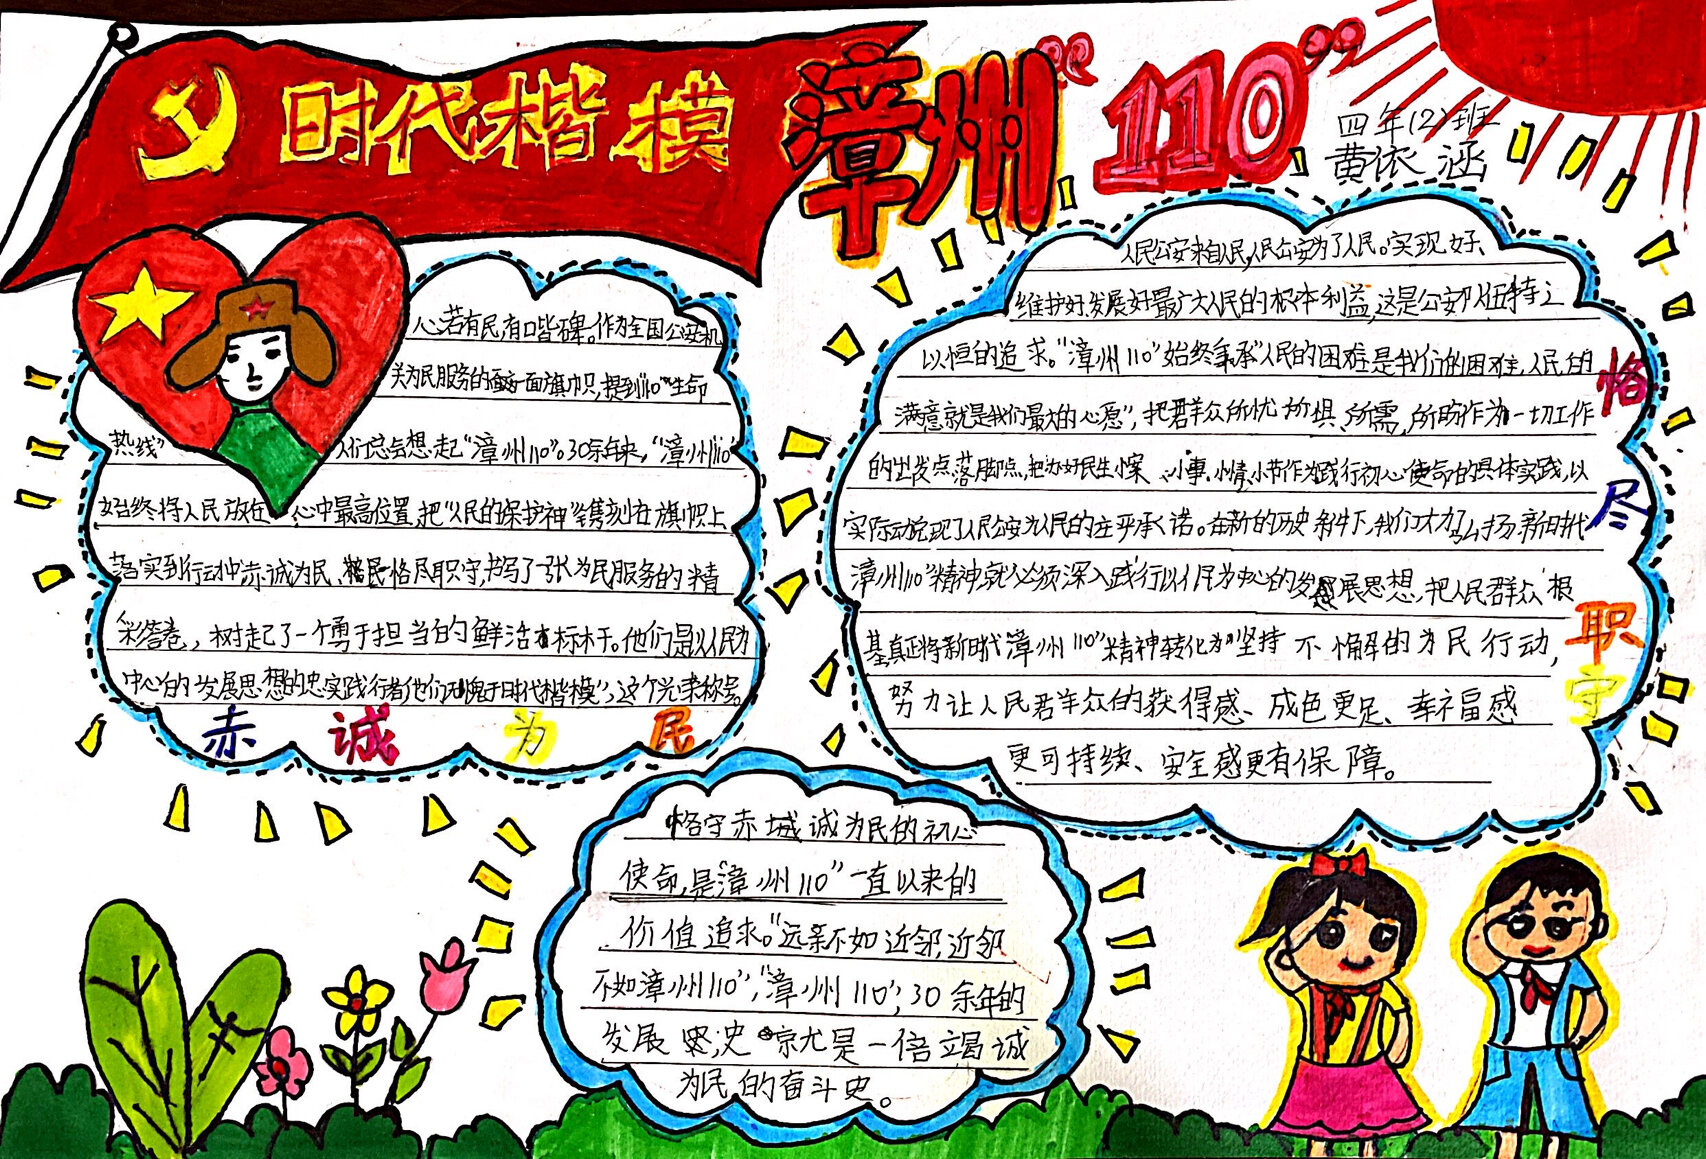 时代楷模漳州“110”
四年(2)班
黄依涵
心若有民,有口皆碑。作为全国公安机
关为民服务的一面旗帜,提到“110”生命
热线”人们总会想起“漳州110”。30余年来,“漳州110”
始终将人民放在心中最高位置,把“人民的保护神”镌刻在旗帜上
落实到行动中,赤诚为民、恪尽职守,书写了一张为民服务的精
彩答卷,树起了一个勇于担当的鲜活标杆。他们是以人民为
中心的发展思想的忠实践行者他们不愧于时代楷模”,这个光荣称号。
赤诚为民
人民公安来自人民,人民公安为了人民。实现好、
维护好、发展好最广大人民的根本利益,这是公安队伍持之
以恒的追求。“漳州110”始终秉承“人民的困难是我们的困难,人民的
满意就是我们最大的心愿”,把群众所忧、所惧、所需,所盼作为一切工作
的出发点落脚点,把办好民生小案、小事.小情、小节作为践行初心使命的具体实践,以
实际动兑现了人民公安为人民的庄严承诺。在新的历史条件下,我们大力弘扬新时代
漳州110”精神,就必须深入践行以人民为中心的发展思想,把人民群众'根
基真正将新时代漳州110”精神转化为“坚持不懈的为民行动,
努力让人民群众的获得感、成色更足、幸福感
更可持续、安全感更有保障。
恪尽职守
恪守赤城诚为民的初心
使命,是漳州110”一直以来的
价值追求。“远亲不如近邻,近邻
不如漳州110”,“漳州110”,30余年的
发展史就是一倍竭诚
为民的奋斗史。